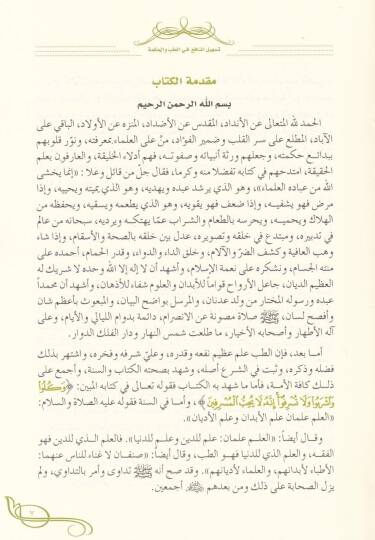 تسهيل المنافع في الطب والحكمة
مقدمة الكتاب
بسم الله الرحمن الرحيم
الحمد لله المتعالى عن الأنداد، المقدس عن الأضداد، المنزه عن الأولاد، الباقي على
الآباد، المطلع على سر القلب وضمير الفؤاد، منَّ على العلماء بمعرفته، ونوّر قلوبهم
ببدائع حكمته، وجعلهم ورثة أنبيائه وصفوته، فهم أدلاء الخليقة، والعارفون بعلم
الحقيقة، امتدحهم في كتابه تفضلا منه وكرما، فقال جلّ من قائل وعلا: «إنما يخشى
الله من عباده العلماء»، وهو الذي يرشد عبده ويهديه، وهو الذي يميته ويحييه، وإذا
مرض فهو يشفيه، وإذا ضعف فهو يقويه، وهو الذي يطعمه ويسقيه، ويحفظه من
الهلاك ويحميه، ويحرسه بالطعام والشراب عمّا يهتكه ويرديه، سبحانه من عالم
في تدبيره، ومبتدع في خلقه وتصويره، عدل بين خلقه بالصحة والأسقام، وإذا شاء
وهب العافية وكشف الضرّ والآلام، وخلق الداء والدواء، وقدر الحمام، أحمده على
مننه الجسام، ونشكره على نعمة الإسلام، وأشهد أن لا إله إلا الله وحده لا شريك له
العظيم الديان، جاعل الأرواح قواماً للأبدان والعلوم شفاء للأذهان، وأشهد أن محمداً
عبده ورسوله المختار من ولد عدنان، والمرسل بواضح البيان، والمبعوث بأعظم شان
وأفصح لسان، ﷺ صلاة مصونة عن الانصرام، دائمة بدوام الليالي والأيام، وعلى
آله الأطهار وأصحابه الأخيار، ما طلعت شمس النهار ودار الفلك الدوار.
أما بعد، فإن الطب علم عظيم نفعه وقدره، وعليّ شرفه وفخره، واشتهر بذلك
فضله وذكره، وثبت في الشرع أصله، وشهد بصحته الكتاب والسنة، وأجمع على
ذلك كافة الأمة، فأما ما شهد به الكتاب فقوله تعالى في كتابه المبين: ﴿وَكُلُوا
وَاشْرَبُوا وَلَا تُسْرِفُوا إِنَّهُ لَا يُحِبُّ الْمُسْرِفِينَ﴾، وأما في السنة فقوله عليه الصلاة والسلام:
«العلم علمان علم الأبدان وعلم الأديان».
وقال أيضاً: «العلم علمان: علم للدين وعلم للدنيا». فالعلم الذي للدين فهو
الفقه، والعلم الذي للدنيا فهو الطب، وقال أيضاً: «صنفان لا غناء للناس عنهما:
الأطباء لأبدانهم، والعلماء لأديانهم». وقد صح أنه ﷺ تداوى وأمر بالتداوي، ولم
يزل الصحابة على ذلك ومن بعدهم ﷺ أجمعين.
٧